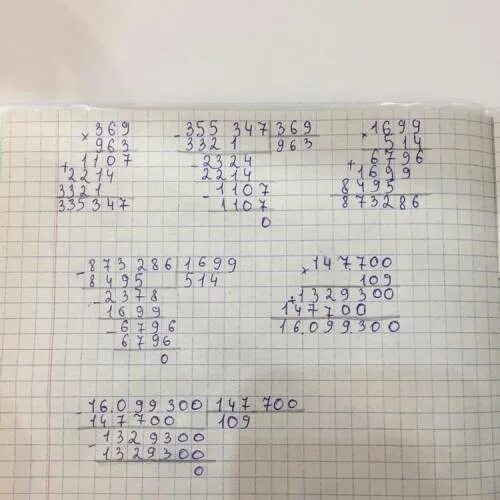 × 369
963
+ 1107
2214
3321
335347
- 355 347 | 369
3321 | 963
- 2324
2214
- 1107
1107
0
× 1699
514
+ 6796
1699
8495
873286
- 873 286 | 1699
8495 | 514
- 2378
1699
- 6796
6796
0
× 147.700
109
+ 1329300
147700
16.099.300
- 16.099300 | 147 700
147700 | 109
- 1329300
1329300
0